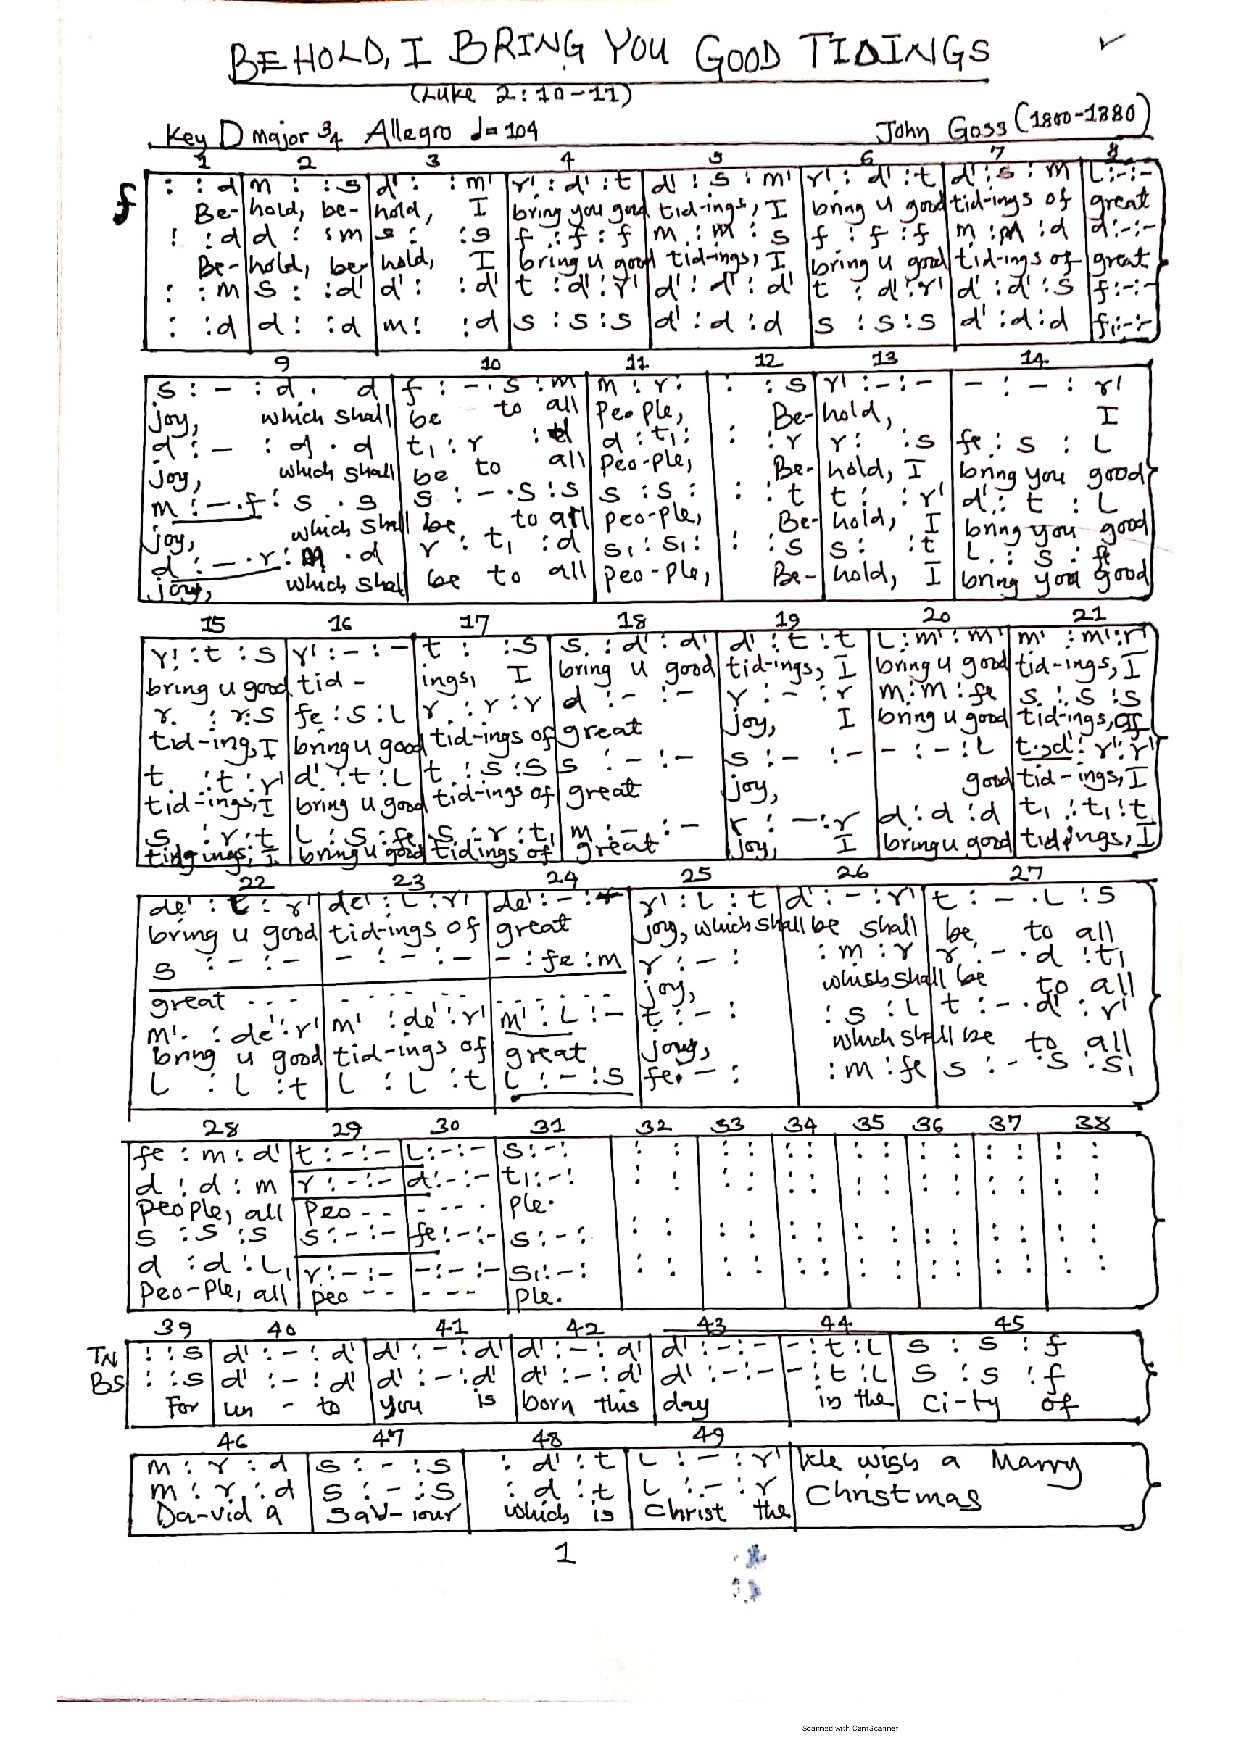 BEHOLD, I BRING YOU GOOD TIDINGS
(Luke 2:10-11)
Key D major 3/4 Allegro ♩=104 John Goss (1800-1880)
1 2 3 4 5 6 7 8
f : : d | m : : s | d' : : m' | r' : d' : t | d' : s : m' | r' : d' : t | d' : s : m | L : - : -
Be- hold, be- hold, I bring you good tid-ings, I bring u good tid-ings of great
: : d | d : : m | s : : s | f : f : f | m : m : s | f : f : f | m : m : d | d : - : -
Be- hold, be hold, I bring u good tid-ings, I bring u good tid-ings of great
: : m | s : : d' | d' : : d' | t : d' : r' | d' : d' : d' | t : d' : r' | d' : d' : s | f : - : -
: : d | d : : d | m : : d | s : s : s | d' : d : d | s : s : s | d' : d : d | f : - : -
9 10 11 12 13 14
s : - : d . d | f : - . s : m | m : r : | : : s | r' : - : - | - : - : r'
joy, which shall be to all people, Be- hold, I
d : - : d . d | t₁ : r : d | d : t₁ : | : : r | r : : s | fe : s : L
joy, which shall be to all peo-ple, Be- hold, I bring you good
m : - . f : s . s | s : - . s : s | s : s : | : : t | t : : r' | d' : t : L
joy, which shall be to all peo-ple, Be- hold, I bring you good
d : - . r : m . d | r : t₁ : d | s₁ : s₁ : | : : s | s : : t | L : s : fe
joy, which shall be to all peo-ple, Be- hold, I bring you good
15 16 17 18 19 20 21
r' : t : s | r' : - : - | t : : s | s : d' : d' | d' : t : t | L : m' : m' | m' : m' : r'
bring u good tid - ings, I bring u good tid-ings, I bring u good tid-ings, I
r : r : s | fe : s : L | r : r : r | d : - : - | r : - : r | m : m : fe | s : s : s
tid-ing, I bring u good tid-ings of great joy, I bring u good tid-ings, of
t : t : r' | d' : t : L | t : s : s | s : - : - | s : - : - | - : - : L | t . d' : r' : r'
tid-ings, I bring u good tid-ings of great joy, good tid-ings, I
s : r : t | L : s : fe | s : r : t₁ | m : - : - | r : - : r | d : d : d | t₁ : t₁ : t
tidg ings, I bring u good tidings of great joy, I bring u good tidings, I
22 23 24 25 26 27
de' : t : r' | de' : L : r' | de' : - : | r' : L : t | d' : - : r' | t : - . L : s
bring u good tid-ings of great joy, which shall be shall be to all
s : - : - | - : - : - | - : fe : m | r : - : | : m : r | r : - . d : t₁
great - - - joy, which shall be to all
m' : de' : r' | m' : de' : r' | m' : L : - | t : - : | : s : L | t : - . d' : r'
bring u good tid-ings of great joy, which shall be to all
L : L : t | L : L : t | L : - : s | fe : - : | : m : fe | s : - . s : s₁
28 29 30 31 32 33 34 35 36 37 38
fe : m : d' | t : - : - | L : - : - | s : - : | : : | : : | : : | : : | : : | : : | : :
d : d : m | r : - : - | d : - : - | t₁ : - : | : : | : : | : : | : : | : : | : : | : :
people, all peo - - - - - - ple.
s : s : s | s : - : - | fe : - : - | s : - : | : : | : : | : : | : : | : : | : : | : :
d : d : L₁ | r : - : - | - : - : - | s₁ : - : | : : | : : | : : | : : | : : | : : | : :
peo-ple, all peo - - - - - ple.
39 40 41 42 43 44 45
TN : : s | d' : - : d' | d' : - : d' | d' : - : d' | d' : - : - | - : t : L | s : s : f
BS : : s | d' : - : d' | d' : - : d' | d' : - : d' | d' : - : - | - : t : L | s : s : f
For un - to you is born this day in the ci-ty of
46 47 48 49
m : r : d | s : - : s | : d' : t | L : - : r' | We wish a Marry
m : r : d | s : - : s | : d : t | L : - : r | Christmas
Da-vid a sav-iour which is Christ the
1
Scanned with CamScanner